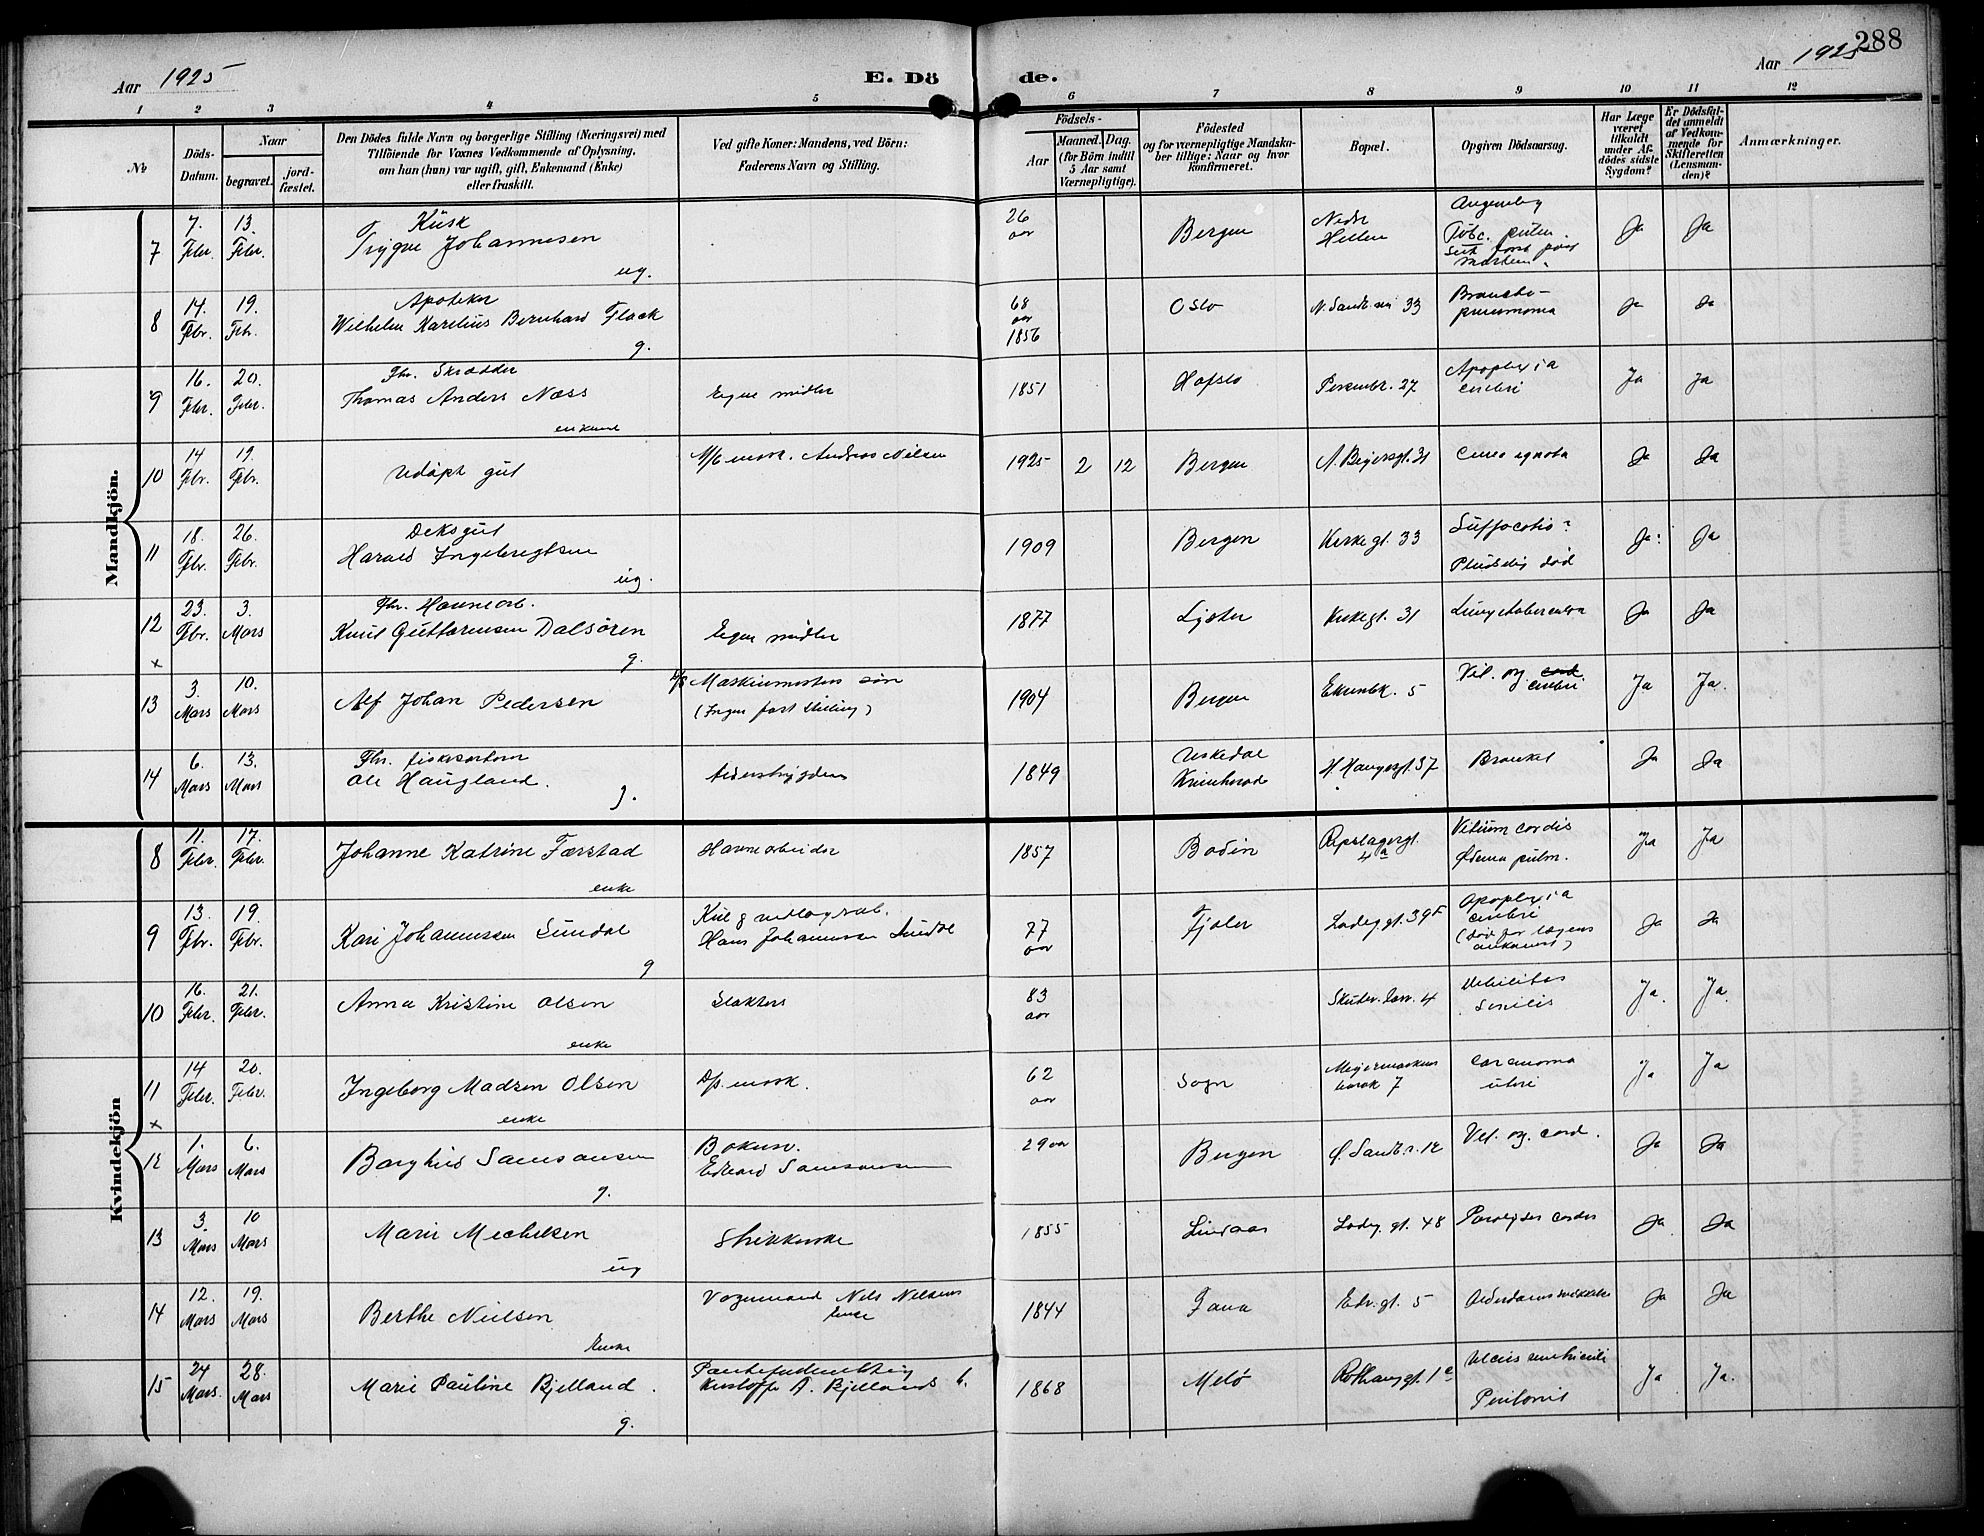 288
Aar 1925
E. Dö de.
Aar 1925
1 2 3 4 5 6 7 8 9 10 11 12
No
Döds-Datum.
Naar
begravet.
jordfæstet.
Den Dödes fulde Navn og borgerlige Stilling (Næringsvei) med
Tilföiende for Voxnes Vedkommende af Oplysning,
om han (hun) var ugift, gift, Enkemand (Enke)
eller fraskilt.
Ved gifte Koner: Mandens, ved Börn:
Faderens Navn og Stilling.
Födsels-
Aar
Maaned.
Dag.
(for Börn indtil
5 Aar samt
Værnepligtige).
Födested
og for værnepligtige Mandskaber
tillige: Naar og hvor
konfirmeret.
Bopæl.
Opgiven Dödsaarsag.
Har Læge
været
tilkaldt
under Afdödes
sidste
Sygdom?
Er Dödsfaldet
anmeldt
af Vedkommende
for
Skifteretten
(Lensmanden)?
Anmærkninger.
Mandkjön.
7 7. Febr. 13. Febr. Kusk
Trygve Johannesen
ug.
26 aar Bergen Nedr Hellen Tubc. pulm. Ja Ja
8 14. Febr. 19. Febr. Apoteker
Wilhelm Karelius Bernhard Flack
g.
68 aar 1856 Oslo N. Sandv.vei 33 Broncho-pneumonia Ja Ja
9 16. Febr. 20. Febr. Fhr. Skrædder
Thomas Anders Næss
enkem
Egne midler 1851 Hafslo 27 Apoplexia cerebri Ja Ja
10 14 Febr. 19. Febr. Udöpt gut
Andreas Nilsen 1925 2 12 Bergen N. Beyersgt. 31 Causa ignota Ja Ja
11 18. Febr. 26. Febr. Deksgut
Harald Ingebregtsen
ug.
1909 Bergen Kirkegt. 33 Suffocatio?
Pludselig död Ja Ja
12 23. Febr. 3. Mars Fhr. Havnearb.
Knut Guttormsen Dalsören
g.
Egne midler 1877 Lyster Kirkegt. 31 Lungetuberculose Ja Ja
x
13 3. Mars 10. Mars Alf Johan Pedersen
Maskinmesters sön
(Ingen fast stilling) 1904 Bergen 5 Vit. org. cerebri Ja Ja.
14 6. Mars 13. Mars Fhr. fiskesortern
Ole Haugland.
g.
Alderstrygden 1849 Uskedal
Kvinherad H. Haugesgt. 37 Bronkit Ja Ja
Kvindekjön
8 11. Febr. 17. Febr. Johanne Katrine Færstad
enke
Havnearbeider 1857 Bodin Repslagergt. 4a Vitium cordis
Ödema pulm. Ja Ja
9 13. Febr. 19. Febr. Kari Johannessen Sundal
g
Hans Johannessen Sundal 77 aar Fjaler Ladeg.gt. 39F Apoplexia cerebri
(död för lægens ankomst) Ja Ja
10 16. Febr. 21. Febr. Anna Kristine Olsen
enke
Slakters 83 aar 4 Debilitas
Senilis Ja. Ja.
11 14 Febr. 20. Febr. Ingeborg Madsen Olsen
enke
Dp. mask. 62 aar Sogn 7 Carcinoma uteri Ja Ja
x
12 1. Mars 6. Mars Borghild Samsonsen
g.
Edvard Samsonsen 29 aar Bergen Ö. Sandv.v. 12 Vit. org. cord. Ja Ja
13 3. Mars 10 Mars Marie Mechelsen
ug
Strikkerske 1855 Lindaas Ladeg. gt. 48 Paralyses cordis Ja Ja
14 12. Mars 19. Mars Berthe Nielsen
Enke
Vognmand Nels Nelsens
Enke 1844 Fana Edv. gt. 5 Alderdomssvækkelse Ja Ja
15 24 Mars. 28. Mars Marie Pauline Bjelland.
g.
Kristoffer A. Bjellands 1868 Melö Rothaugsgt. 1c Ulcus ventriculi
Peritonit Ja Ja.